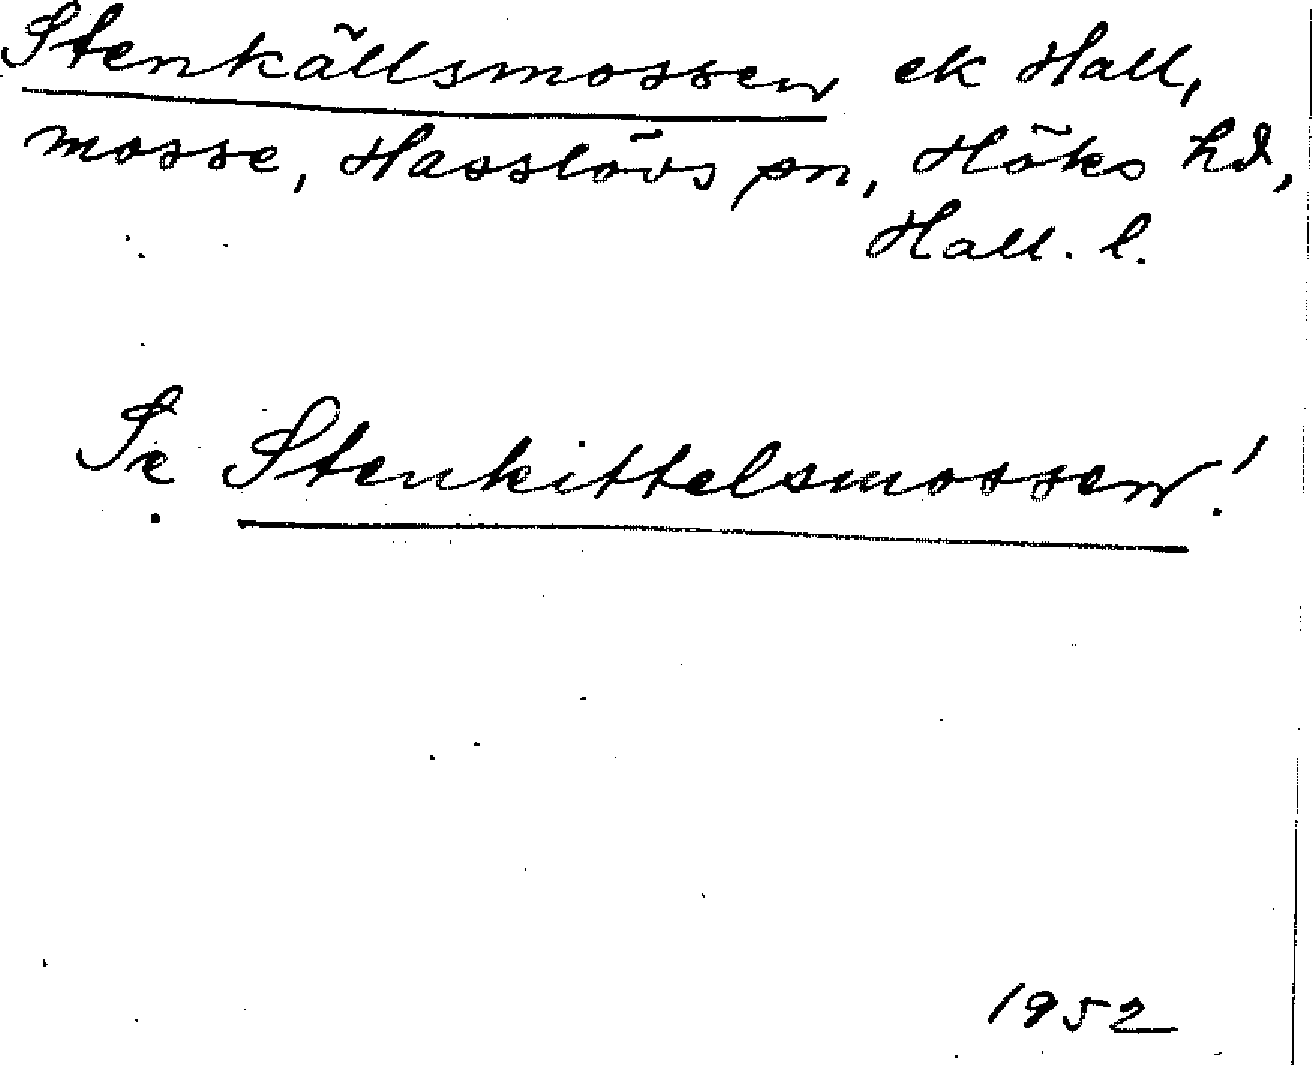 Stenkällsmossen ek Hall,
mosse, Hasslövs sn, Höks hd,
Hall. l.
Se Stenkittelsmossen!
1952